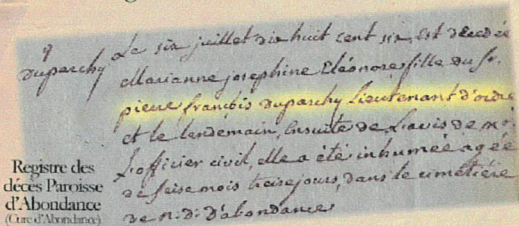 9
duparchy
Le six juillet dix huit cent six, est décédée
Marianne josephine Eléonore fille du sr.
pierre françois duparchy Lieutenant d'ordre
et le lendemain, Ensuite de L'avis de mr.
L'officier civil, elle a été inhumée agée
de seise mois treise jours, dans le cimetière
de n: d: d'abondance
Registre des
décès Paroisse
d'Abondance
(Cure d'Abondance)